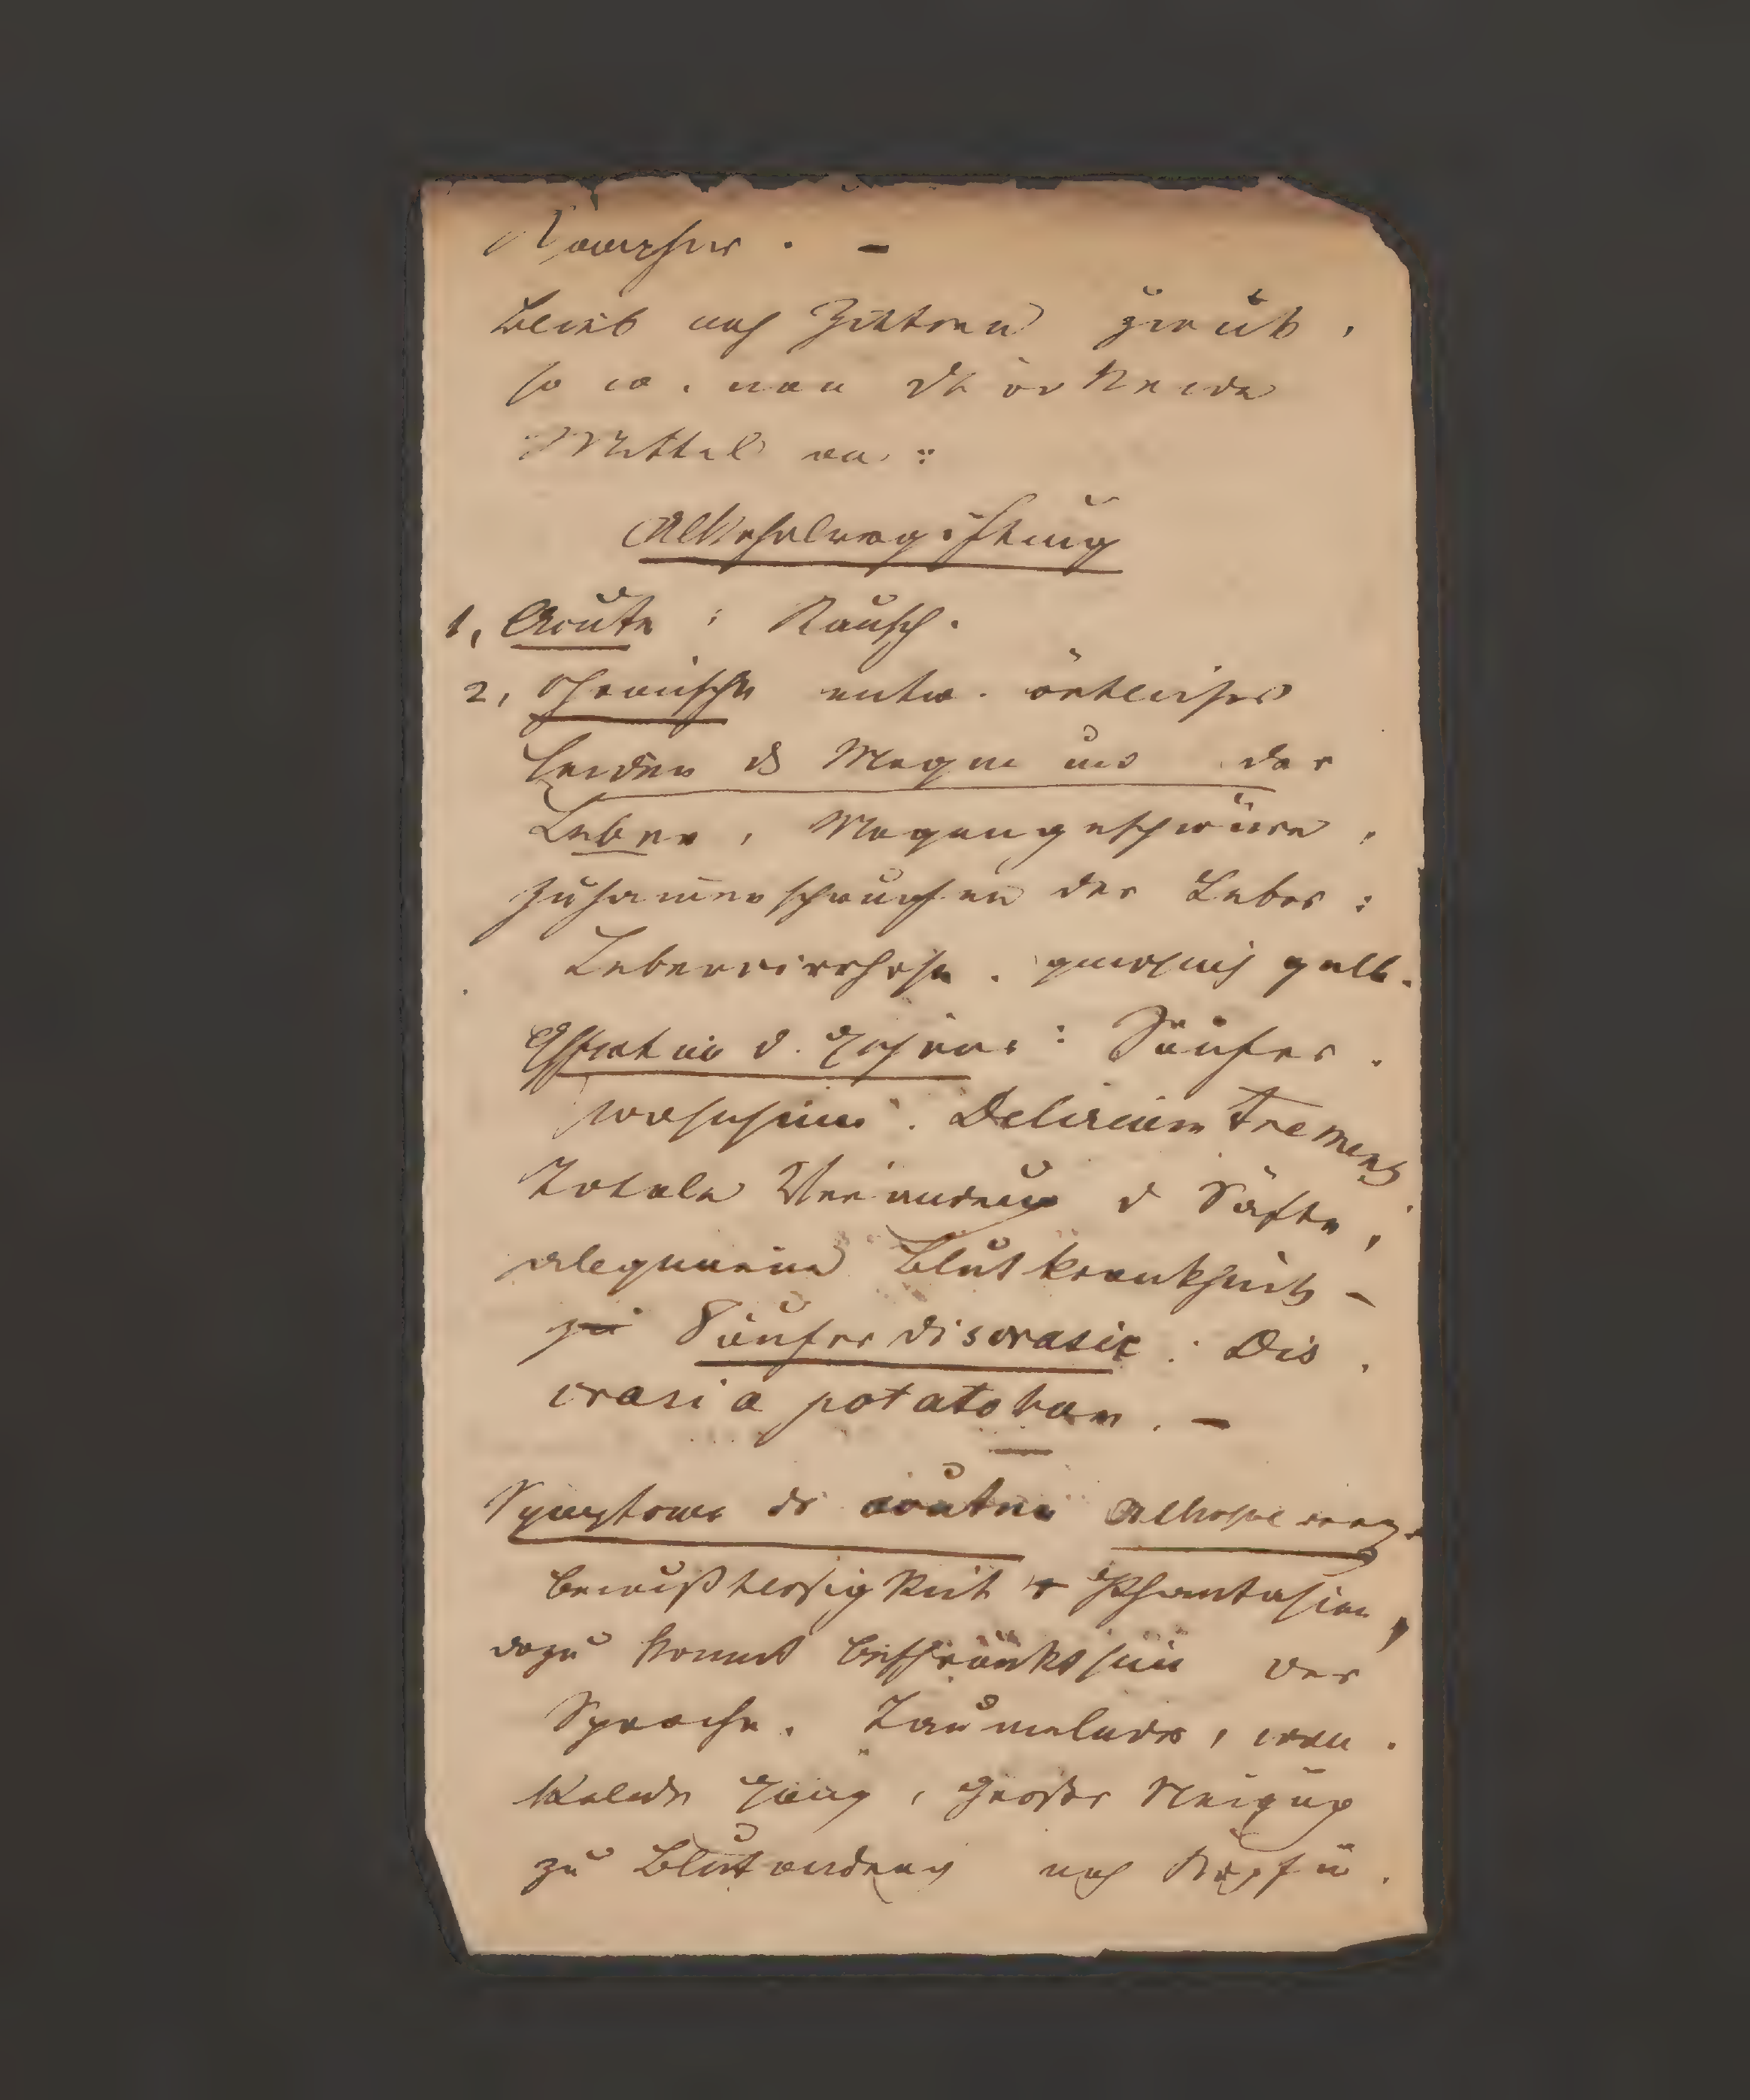 Kampher. –
Bleibt noch Zittern zurük,
so w. man stärkende
Mittel an:
Alkoholvergiftung
1, Acute: Rausch.
2, Chronische entw. örtliches
Leiden ds Magen und der
Leber, Magengeschwüre,
Zusammenschrumpfen der Leber:
Lebercirrhose. gewöhnlich gelb.
Affection d. Gehirns: Säufer.
wahnsinn. Delirium Tremens
Totale Veränderung d Säfte,
alegmeine Blutkrankheit –
Säuferdiscrasie: Dis
crasia potatorum. –
Symptome dr acuten Alkoholverg.
Bewußtlosigkeit Phantasien,
dazu kommt Beschränktsein der
Sprache. Taumelnder, wan.
kelnder Gang, Großer Neigung
zu Blutandrang nach Kopf u.